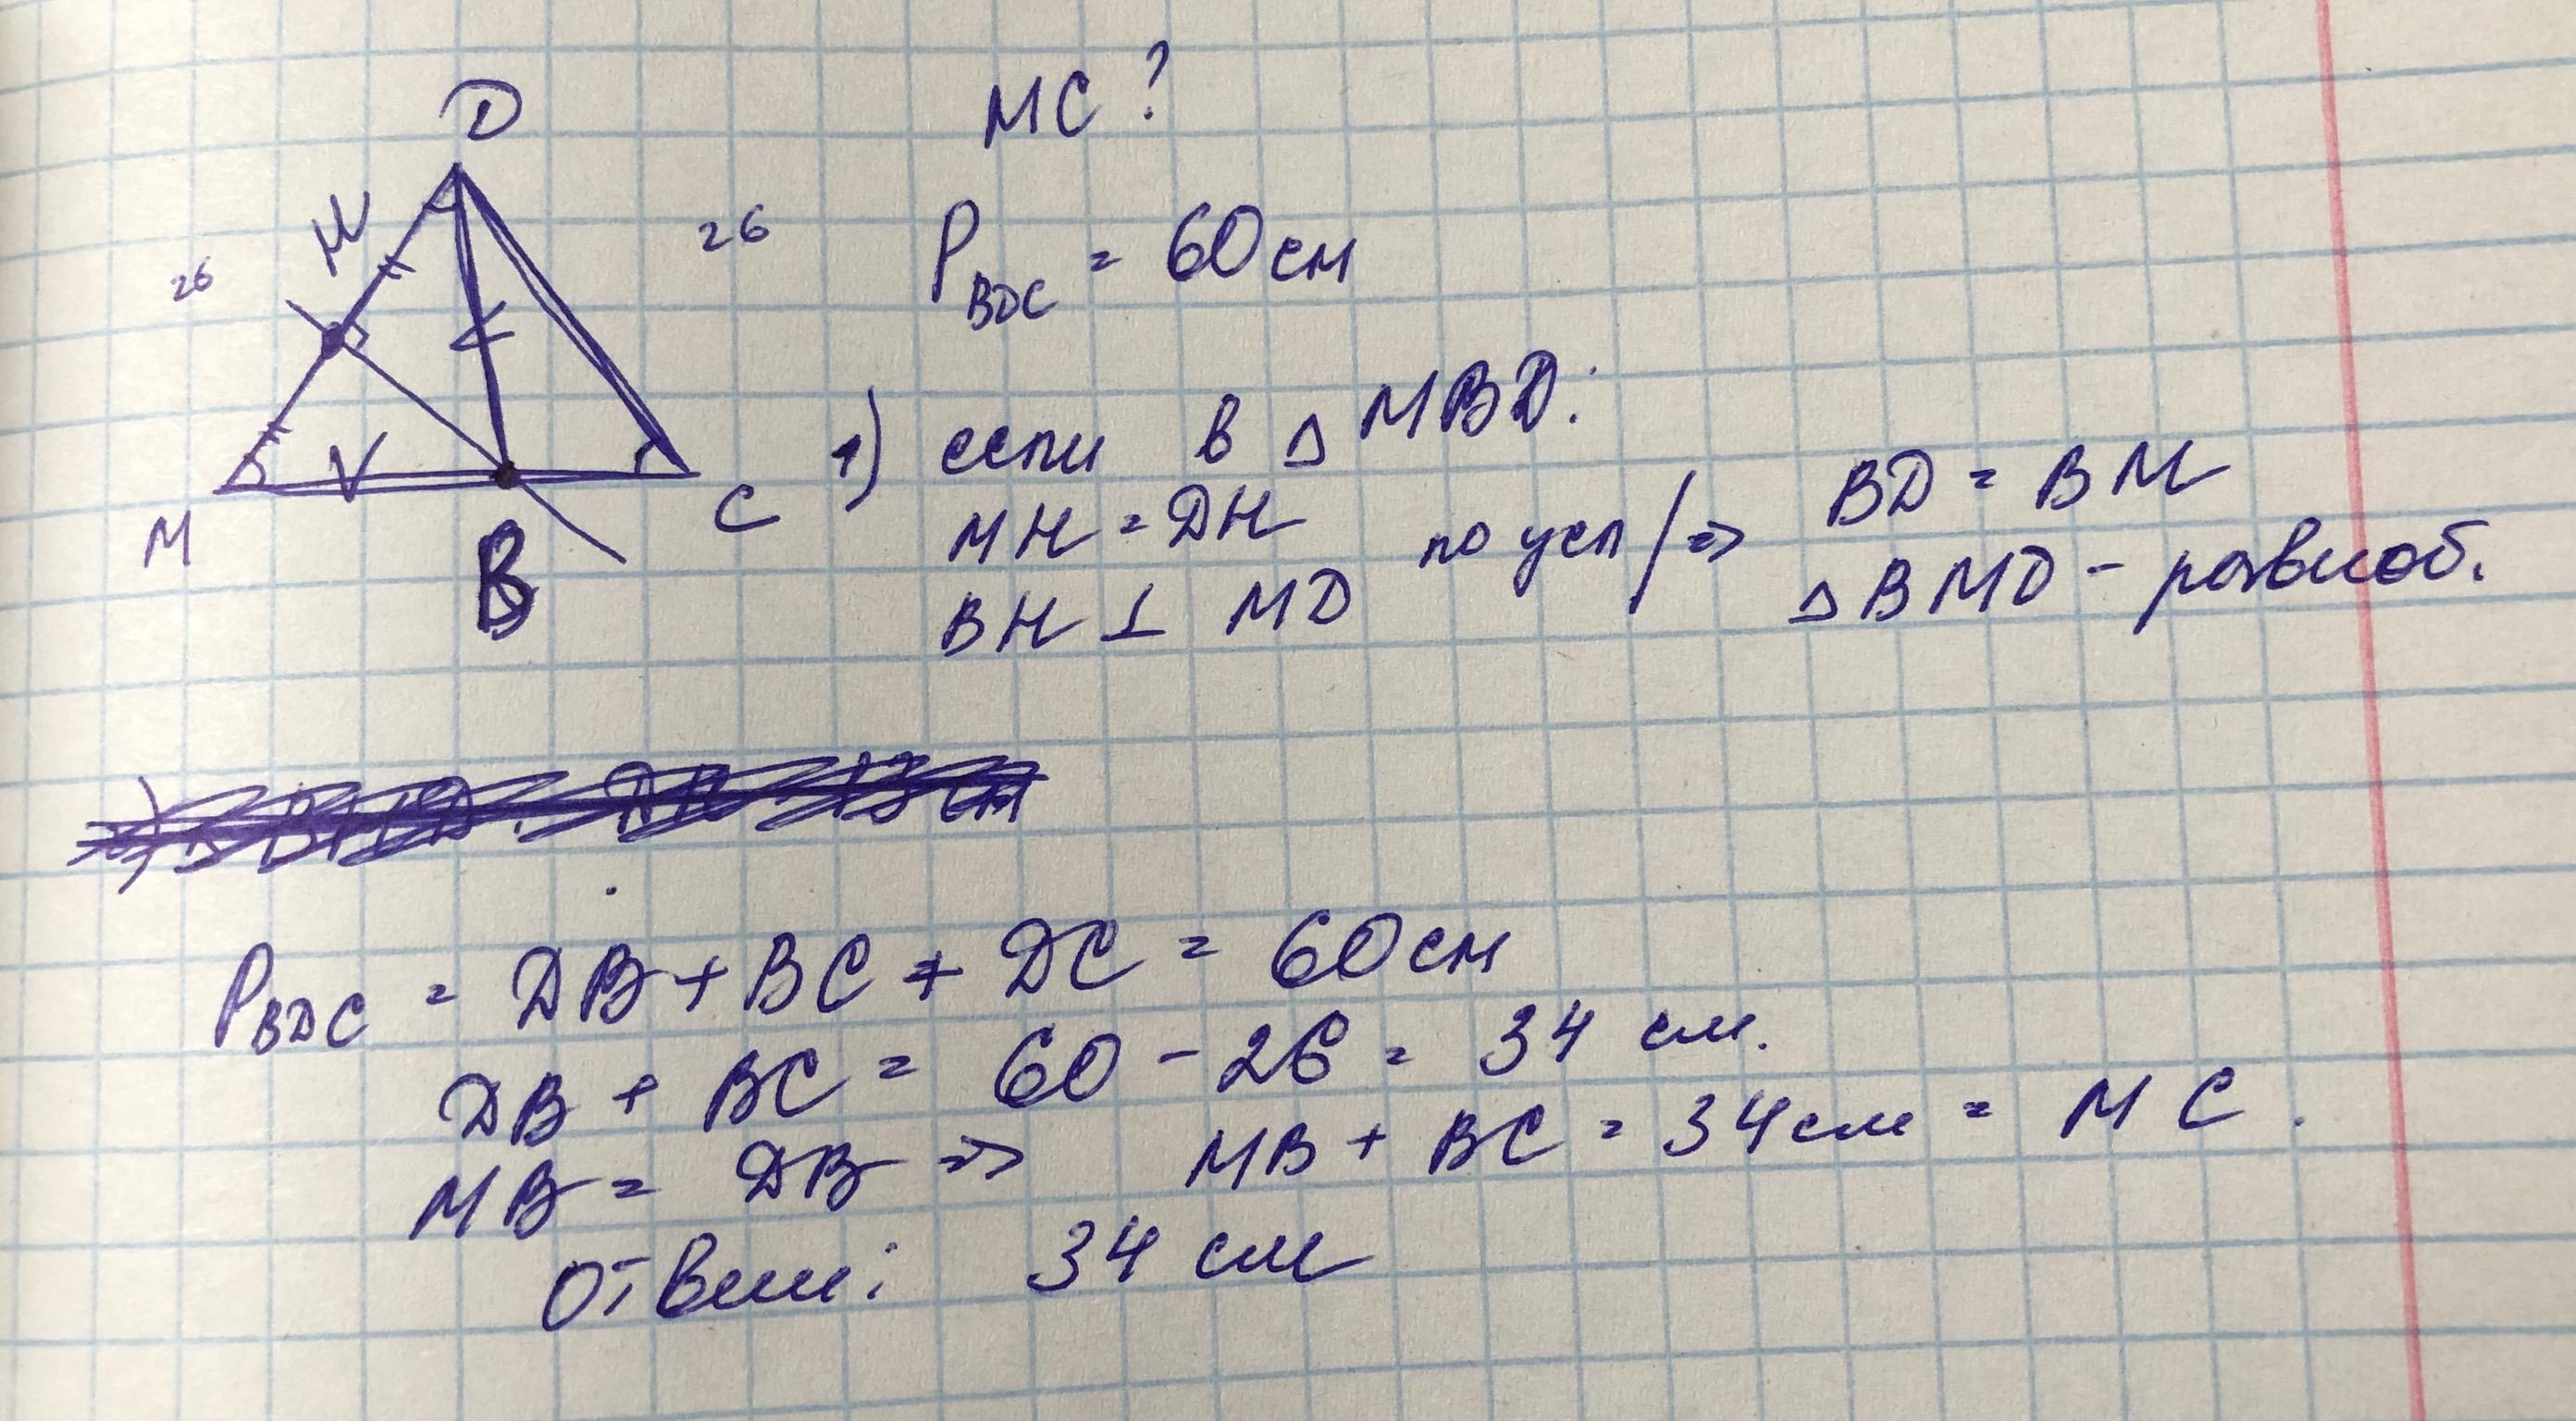 D
MC ?
H
26
26
P BDC = 60 см
M
B
C
1) если в △ MBD:
MH = DH
BH ⊥ MD
по усл / => BD = BM
△ BMD - равноб.
P BDC = DB + BC + DC = 60 см
DB + BC = 60 - 26 = 34 см.
MB = DB => MB + BC = 34 см = MC.
Ответ: 34 см